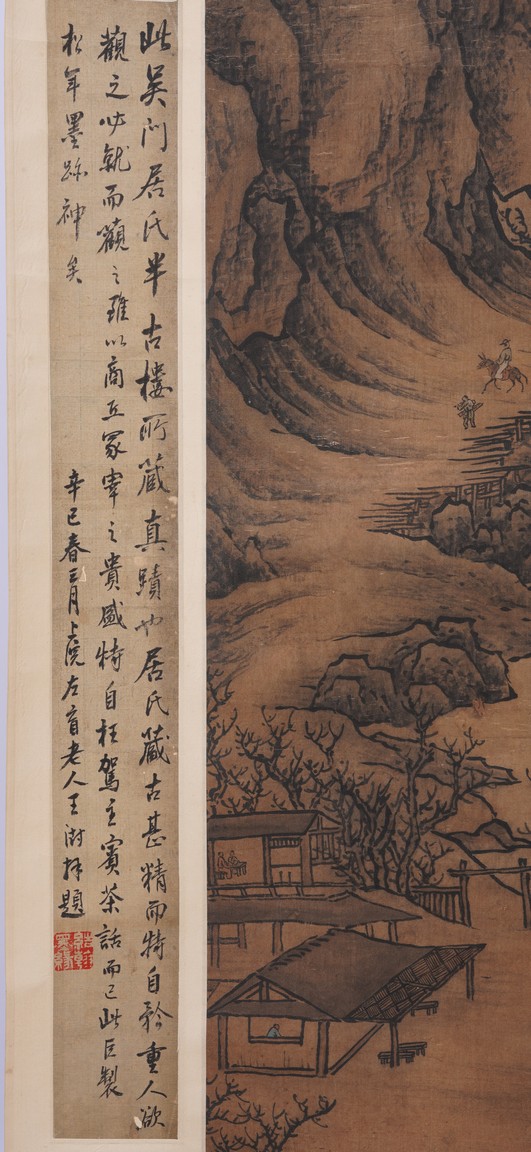 此吴门居氏半古楼所藏真蹟也居氏藏古甚精而特自矜重人欲
觀之必就而觀之雖以商丘冢宰之貴盛特自枉駕主賓茶話而已此巨製
松年墨跡神矣
辛巳春三月上浣左盲老人王澍拜題